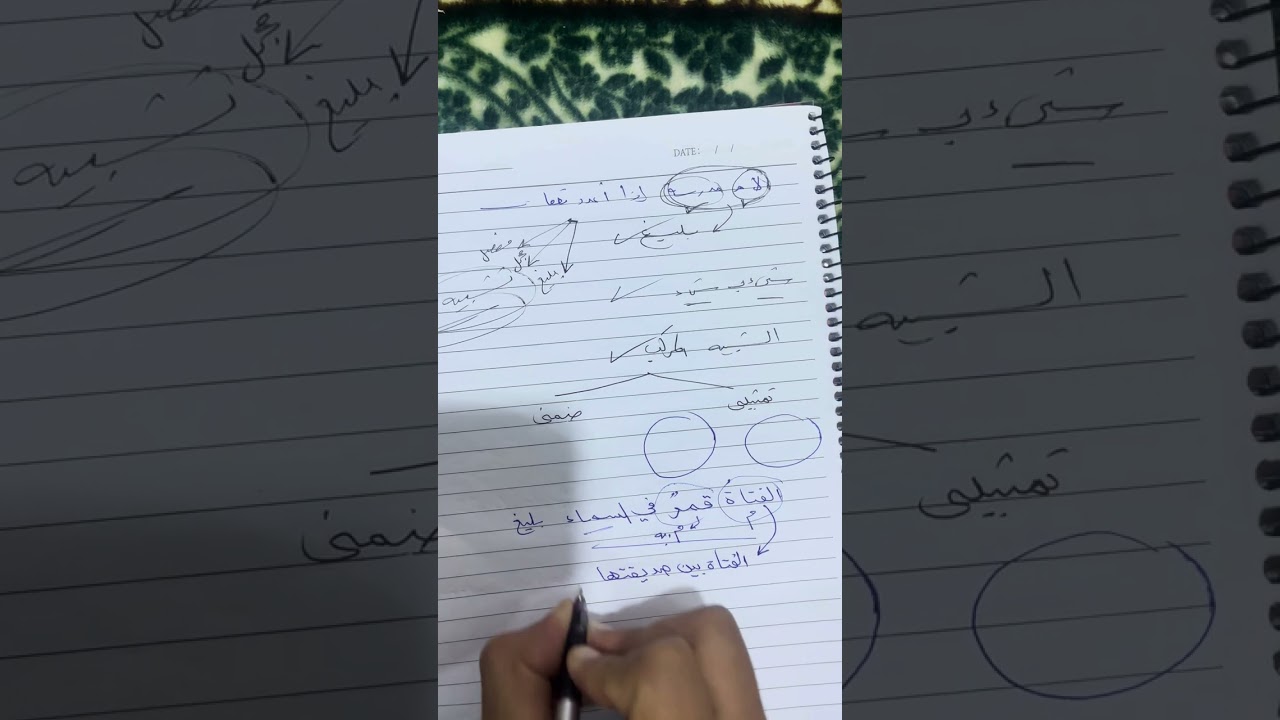 DATE: / /
الام مدرسة إذا أعددتها
بليغ
مفصل
مجمل
بليغ
تشبيه
شيء ب شيء
التشبيه المركب
تمثيلي
ضمني
الفتاة قمر في السماء بليغ
م م به
الفتاة بين صديقتها